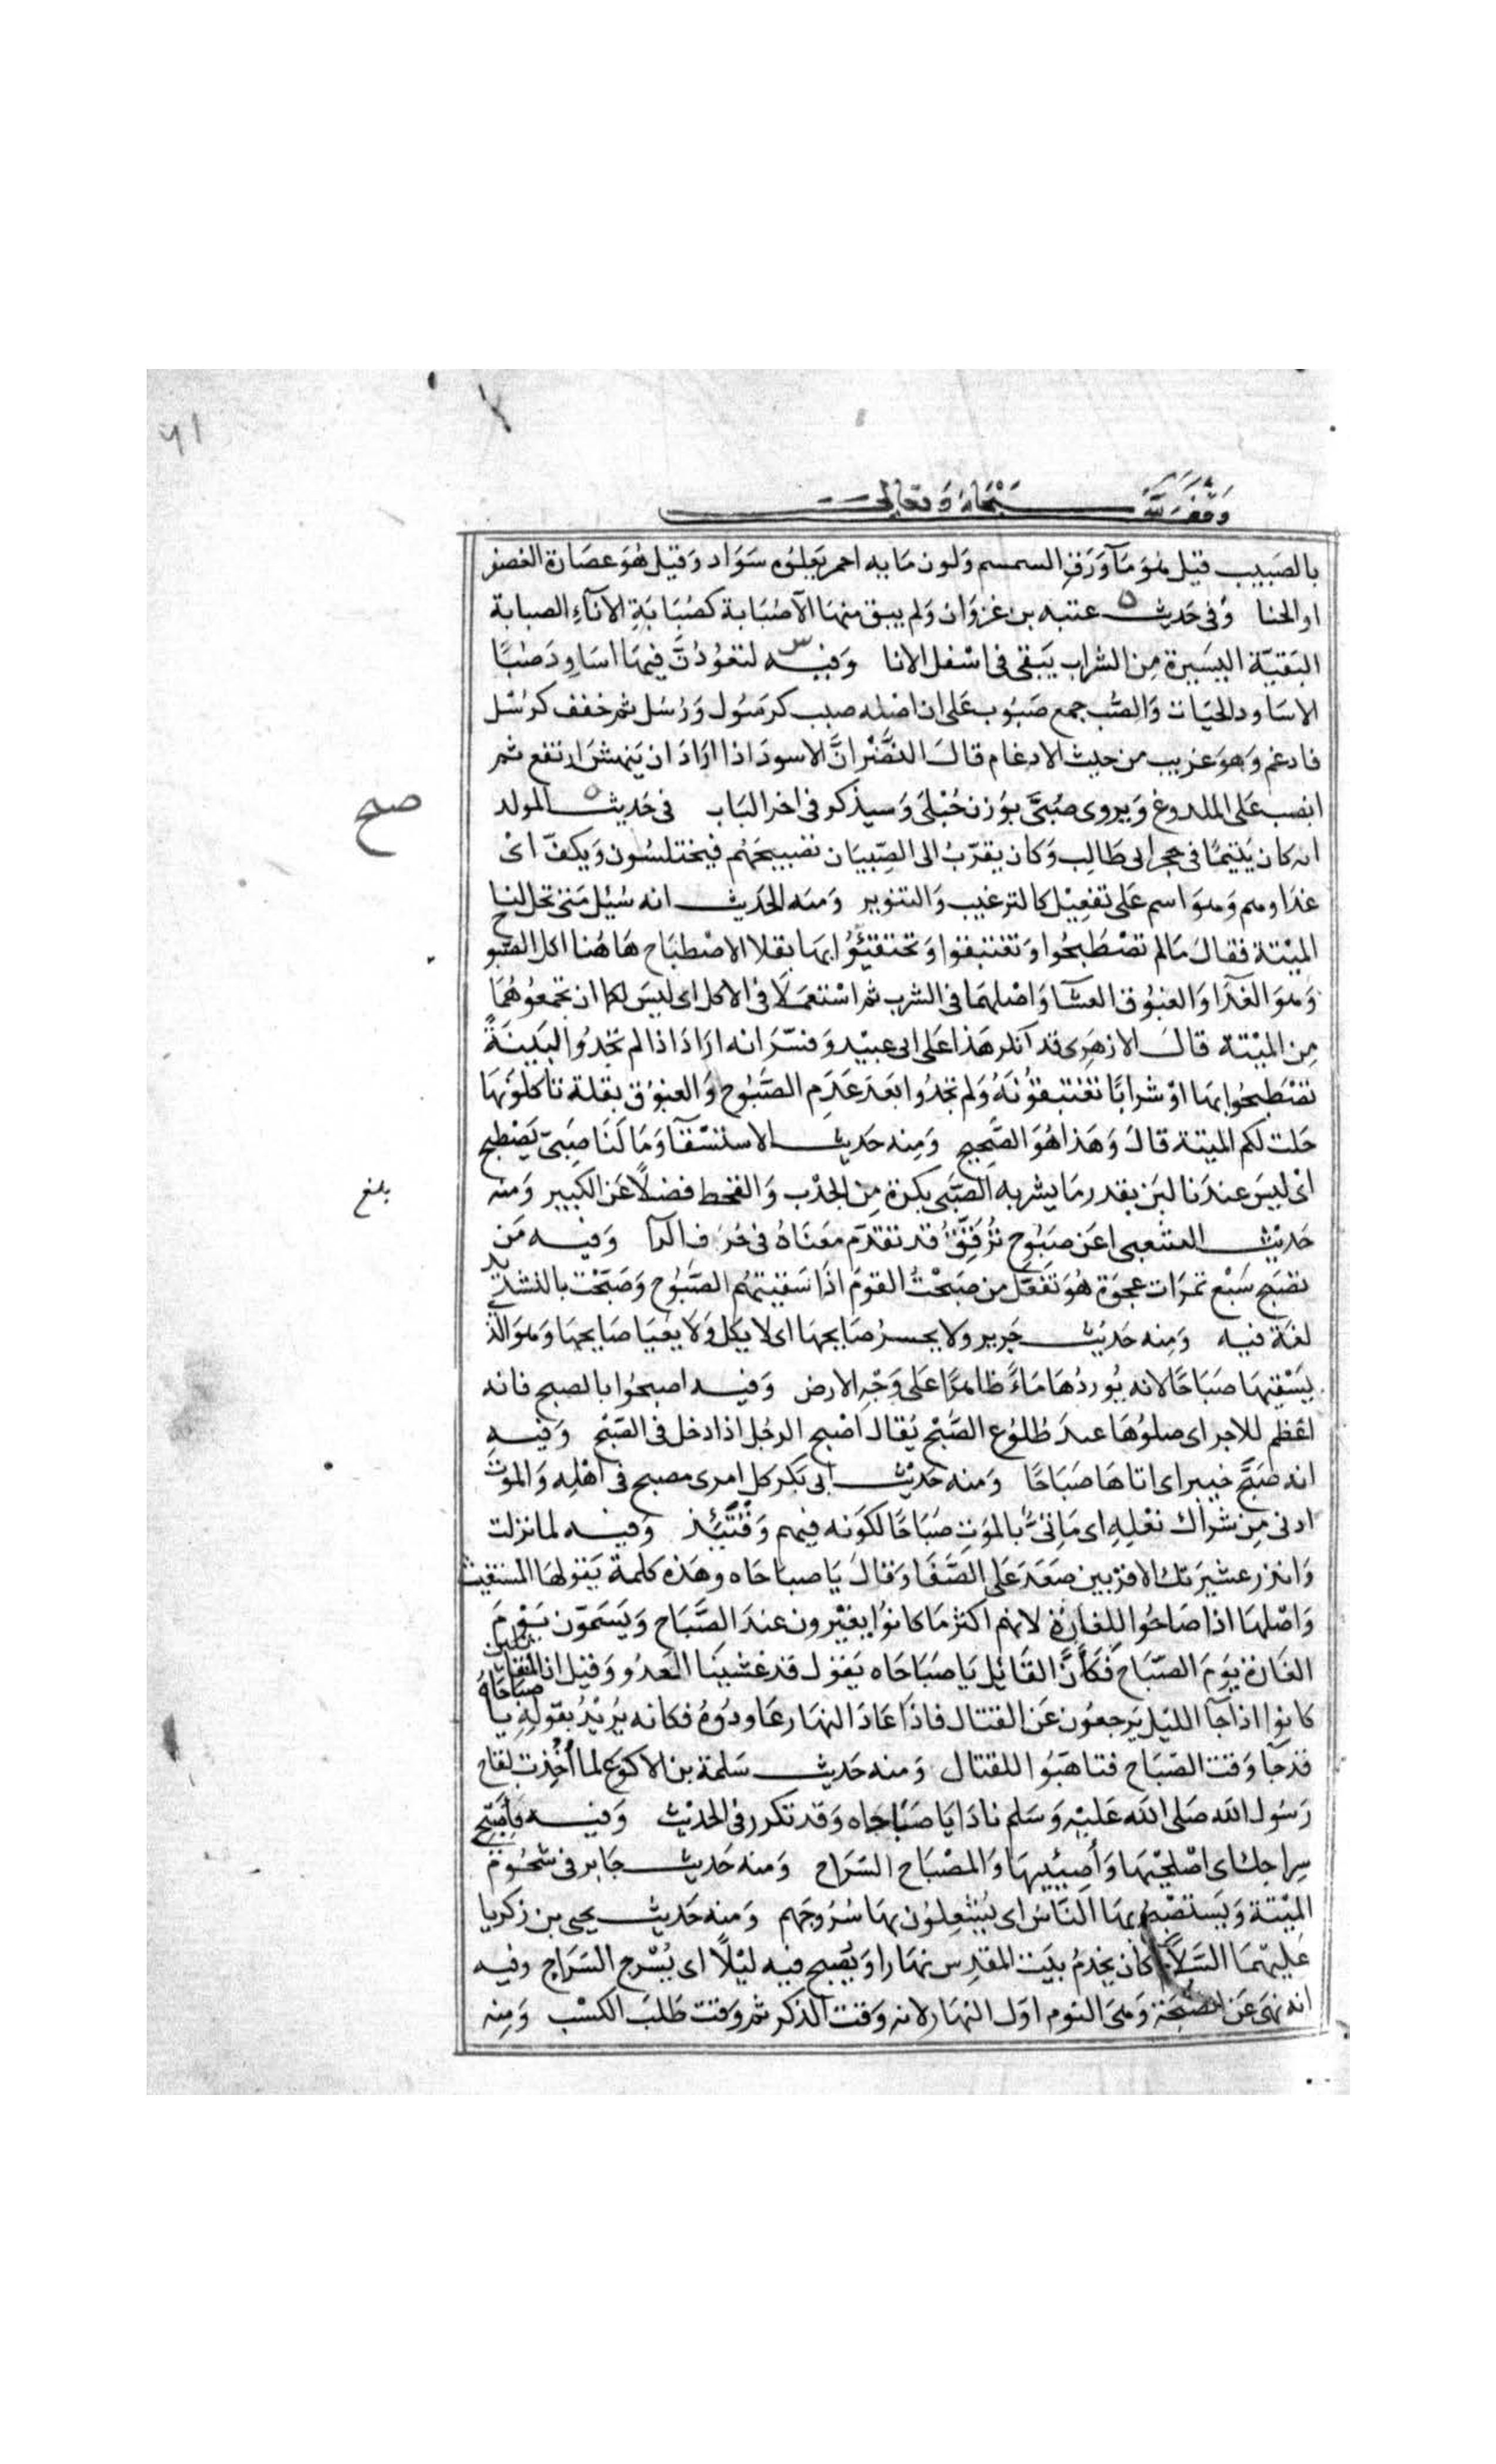 ٦١
وقف لله سبحانه وتعالى
بالصبيب قيل هو ماء ورق السمسم ولون مايه احمر يعلوه سواد وقيل هو عصارة العصفر
او الحنا وفى حديث عتبه بن غزوان ولم يبق منها الا صُبَابة كصُبَابَةِ الاناء الصبابة
البقيّة اليسيرة مِن الشراب يَبقى فى اسْفل الانا وَفيه لتعُودُنَّ فيهَا اسَاوِدَ صُبًّا
الاسَاود الحيَات وَالصُّب جمع صَبُوب عَلى ان اصْله صبب كرسُول وَرُسُل ثم خفف كرُسْل
فادغم وَهوَ غريب من حيث الادغام قالَ النضْر انَّ الاسودَ اذا ارَادَ ان يَنهشَ ارتفع ثم
انصب عَلى الملدوغ وَيروى صُبَّى بوَزن حُبْلَى وَسيذكر فى اخر البَاب فى حَديث المولد
صح
انه كان يَتيمًا فى حجر ابى طَالِب وَكان يقرّبُ الى الصِّبيَان تصبيحَهُم فيختلسُون وَيكفّ اىْ
غدَاوهم وَهوَ اسم عَلى تفعِيْل كالترغيب وَالتنوير وَمنه الحَديث انه سُئِل مَتى تحل لنا
الميْتة فقالَ مَالم تصْطبحُوا وَتغتبقوا وَتحتفِئُوْا بهَا بقلا الاصْطبَاح هَاهُنا اكل الصَّبوح
وَهوَ الغدَا وَالغبُوق العشا وَاصْلهمَا فى الشرب ثم اسْتعمَلا فى الاكل اى ليسَ لكم ان تجمعُوهُمَا
مِن الميْتة قالَ الازهرى قد انكر هَذا عَلى ابى عبيْد وَفسّرَ انه ارَادَ اذا لم تجدُوا لبَينَةً
تصْطبحُوا بهَا اوْ شرابًا تغتبقُونَهُ وَلم تجدُوا بَعدَ عَدَم الصَّبُوح وَالغبُوق بقلة تاكلونهَا
حَلت لكم الميتة قالَ وَهَذا هُوَ الصَّحِيح وَمِنه حَديث الاستسْقا وَمَا لَنَا صَبىّ يَصْطبح
اىْ ليسَ عندَنا لبَن بقدر مَا يشربه الصَّبى بكرة مِن الجدْب وَالقحط فضلًا عَن الكبير وَمنه
بلغ
حَديث الشعبى اعَن صَبُوح تُرقِّقُ قد تقدّم معنَاهُ فى حَرف الرا وَفيه مَن
تصَبح سَبْع تمرَات عجوَة هُوَ تفَعّل من صَبحْتُ القومَ اذا سَقيتهُم الصَّبُوح وَصَبَّحْت بالتشديد
لغَة فيه وَمِنه حَديث جَرير وَلا يحسرُ صَابحهَا اى لا يكل وَلا يعْيَا صَابحهَا وَهوَ الذ
يَسْقيهَا صَبَاحًا لانه يُوردُهَا مَاءً ظاهرًا عَلى وَجْه الارض وَفيه اصبحُوا بالصبح فانه
اعْظم للاجر اى صلوُهَا عندَ طُلوُع الصُّبْح يُقال اصْبح الرجُل اذا دخل فى الصّبْح وَفيه
انه صَبَّحَ خيبر اى اتاهَا صَبَاحًا وَمنه حَديْث ابى بَكر كل امرى مصبح فى اهْلِه وَالموْت
ادنى مِن شراك نعْلِهِ اى مَاتىٌّ بالموَت صَبَاحًا لكوَنه فيهم وَقتئِذ وَفيه لما نزلت
وَانذر عشيرَتك الاقربين صَعَدَ عَلى الصَّفَا وَقالَ يَا صباحَاه وهَذه كلمة يَقولهَا المستغيث
وَاصْلهَا اذا صَاحُوا للغارَة لانهم اكثر مَا كانوُا يغيْرون عندَ الصَّبَاح وَيَسَمّون يَوْمَ
الغارَة يَومَ الصَّبَاح فَكَأنَّ القَائِل يَا صَبَاحَاه يَقول قد غشيَنا العَدُو وَقيل ان المتقاتلين
كانوا اذا جَآ الليْل يَرجعُون عَن القتال فاذا عَادَ النهار عَاودُوهُ فكانه يُريْدُ بقوْلِهِ يا صباحَاهُ
قد جَآ وَقت الصّبَاح فتاهبَوا للقتال وَمنه حَديث سَلمة بن الاكوَع لما اُخِذت لقاح
رَسُول الله صَلى الله عَليْه وَسَلم نادَا يَا صَبَاحَاه وَقد تكرر فى الحَديْث وَفيه فاصْبِحى
سِراجك اى اصْلحيْهَا وَأضِيْئيهَا وَالمصْبَاح السّرَاج وَمنه حَديث جَابر فى شحُوم
الميْتة وَيَستصْبح بهَا النَّاسُ اى يُشْعِلوُن بهَا سُرُوجَهم وَمنه حَديث يحيى بن زكريا
عَليْهمَا السَّلام كان يخدمُ بيَت المقدِس نهَارا وَيُصبح فيه ليْلًا اى يُسْرج السّرَاج وفيه
انه نهَى عَن الصبْحَة وَهىَ النوم اوّل النهَار لانه وَقت الذكر ثم وَقت طَلبَ الكسْب وَمِنه